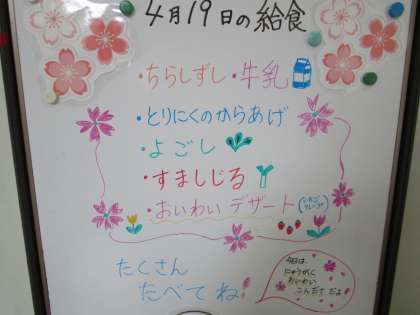 4月19日の給食
・ちらしずし・牛乳
・とりにくのからあげ
・よごし
・すましじる
・おいわいデザート(いちごクレープ)
たくさん
たべてね!
今日は、
にゅうがく
おいわい
こんだてだよ